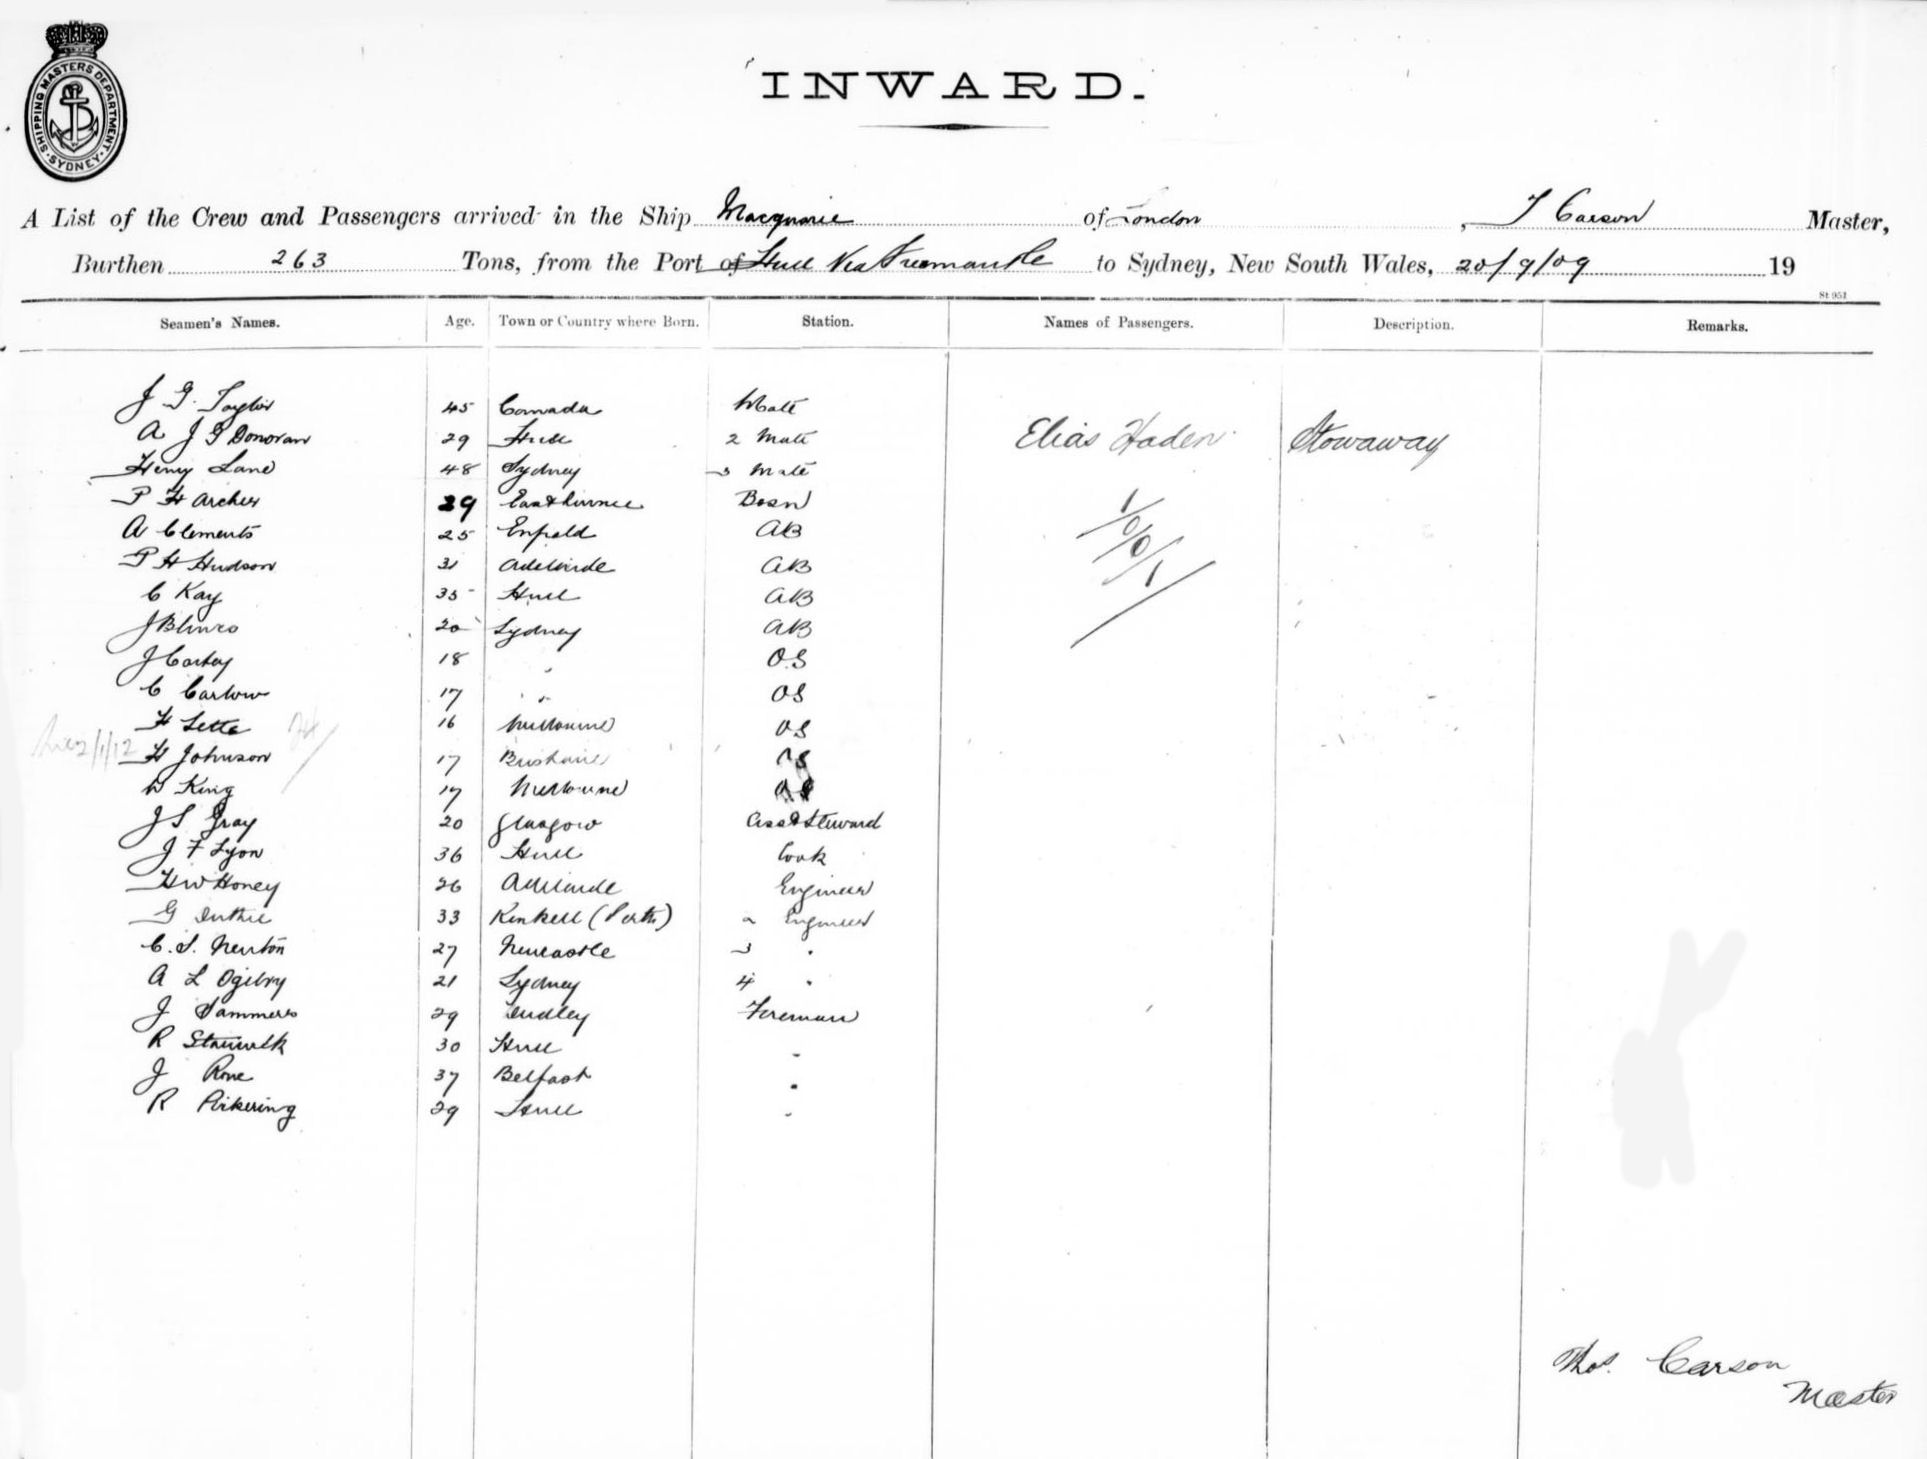 SHIPPING MASTERS DEPARTMENT. SYDNEY
INWARD.
A List of the Crew and Passengers arrived in the Ship Macquarie of London, T Carson Master,
Burthen 263 Tons, from the Port of Hull Via Fremantle to Sydney, New South Wales, 20/9/09 19
St 951
Seamen's Names. Age. Town or Country where Born. Station. Names of Passengers. Description. Remarks.
J G Taylor 45 Canada Mate
A J G Donovan 29 Hull 2 Mate Elias Haden Stowaway
Henry Lane 48 Sydney 3 Mate
P H Archer 29 Bosn
A Clements 25 Enfield AB
P H Hudson 31 Adelaide AB
C Kay 35 Hull AB
J Blinco 20 Sydney AB
J Carley 18 " OS
C Carlow 17 " " OS
H Lette 16 Melbourne OS
H Johnson 17 Brisbane OS
W King 17 Melbourne OS
J S Gray 20 Glasgow Asst Steward
J F Lyon 36 Hull Cook
H W Honey 26 Adelaide Engineer
G Duthie 33 Kinkell (Perth) 2 Engineer
C. S. Newton 27 Newcastle 3 "
A L Ogilvy 21 Sydney 4 "
J Sammers 29 Dudley Fireman
R 30 Hull "
J Rone 37 Belfast "
R Pickering 29 Hull "
1/0/0/1
Thos. Carson
Master